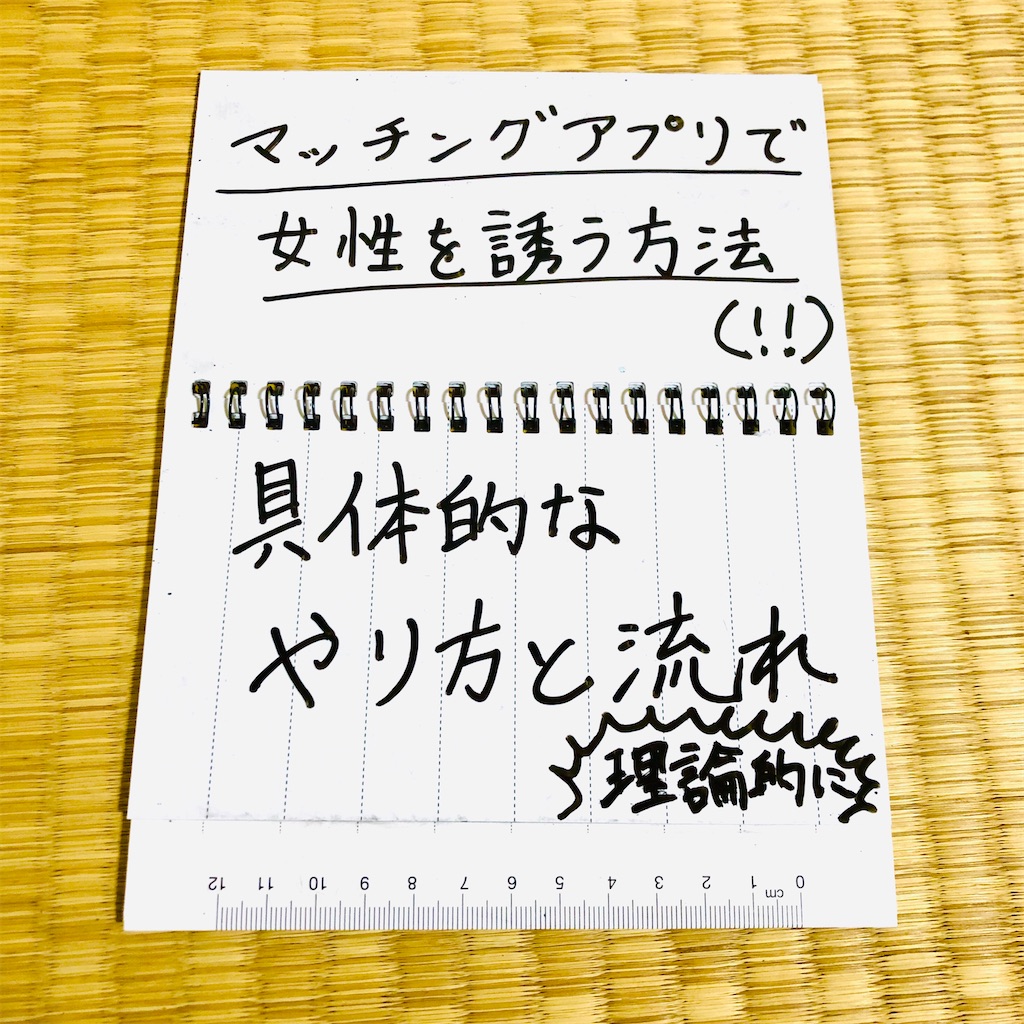 マッチングアプリで
女性を誘う方法
(!!)
具体的な
やり方と流れ
理論的に
12 11 10 9 8 7 6 5 4 3 2 1 0
cm